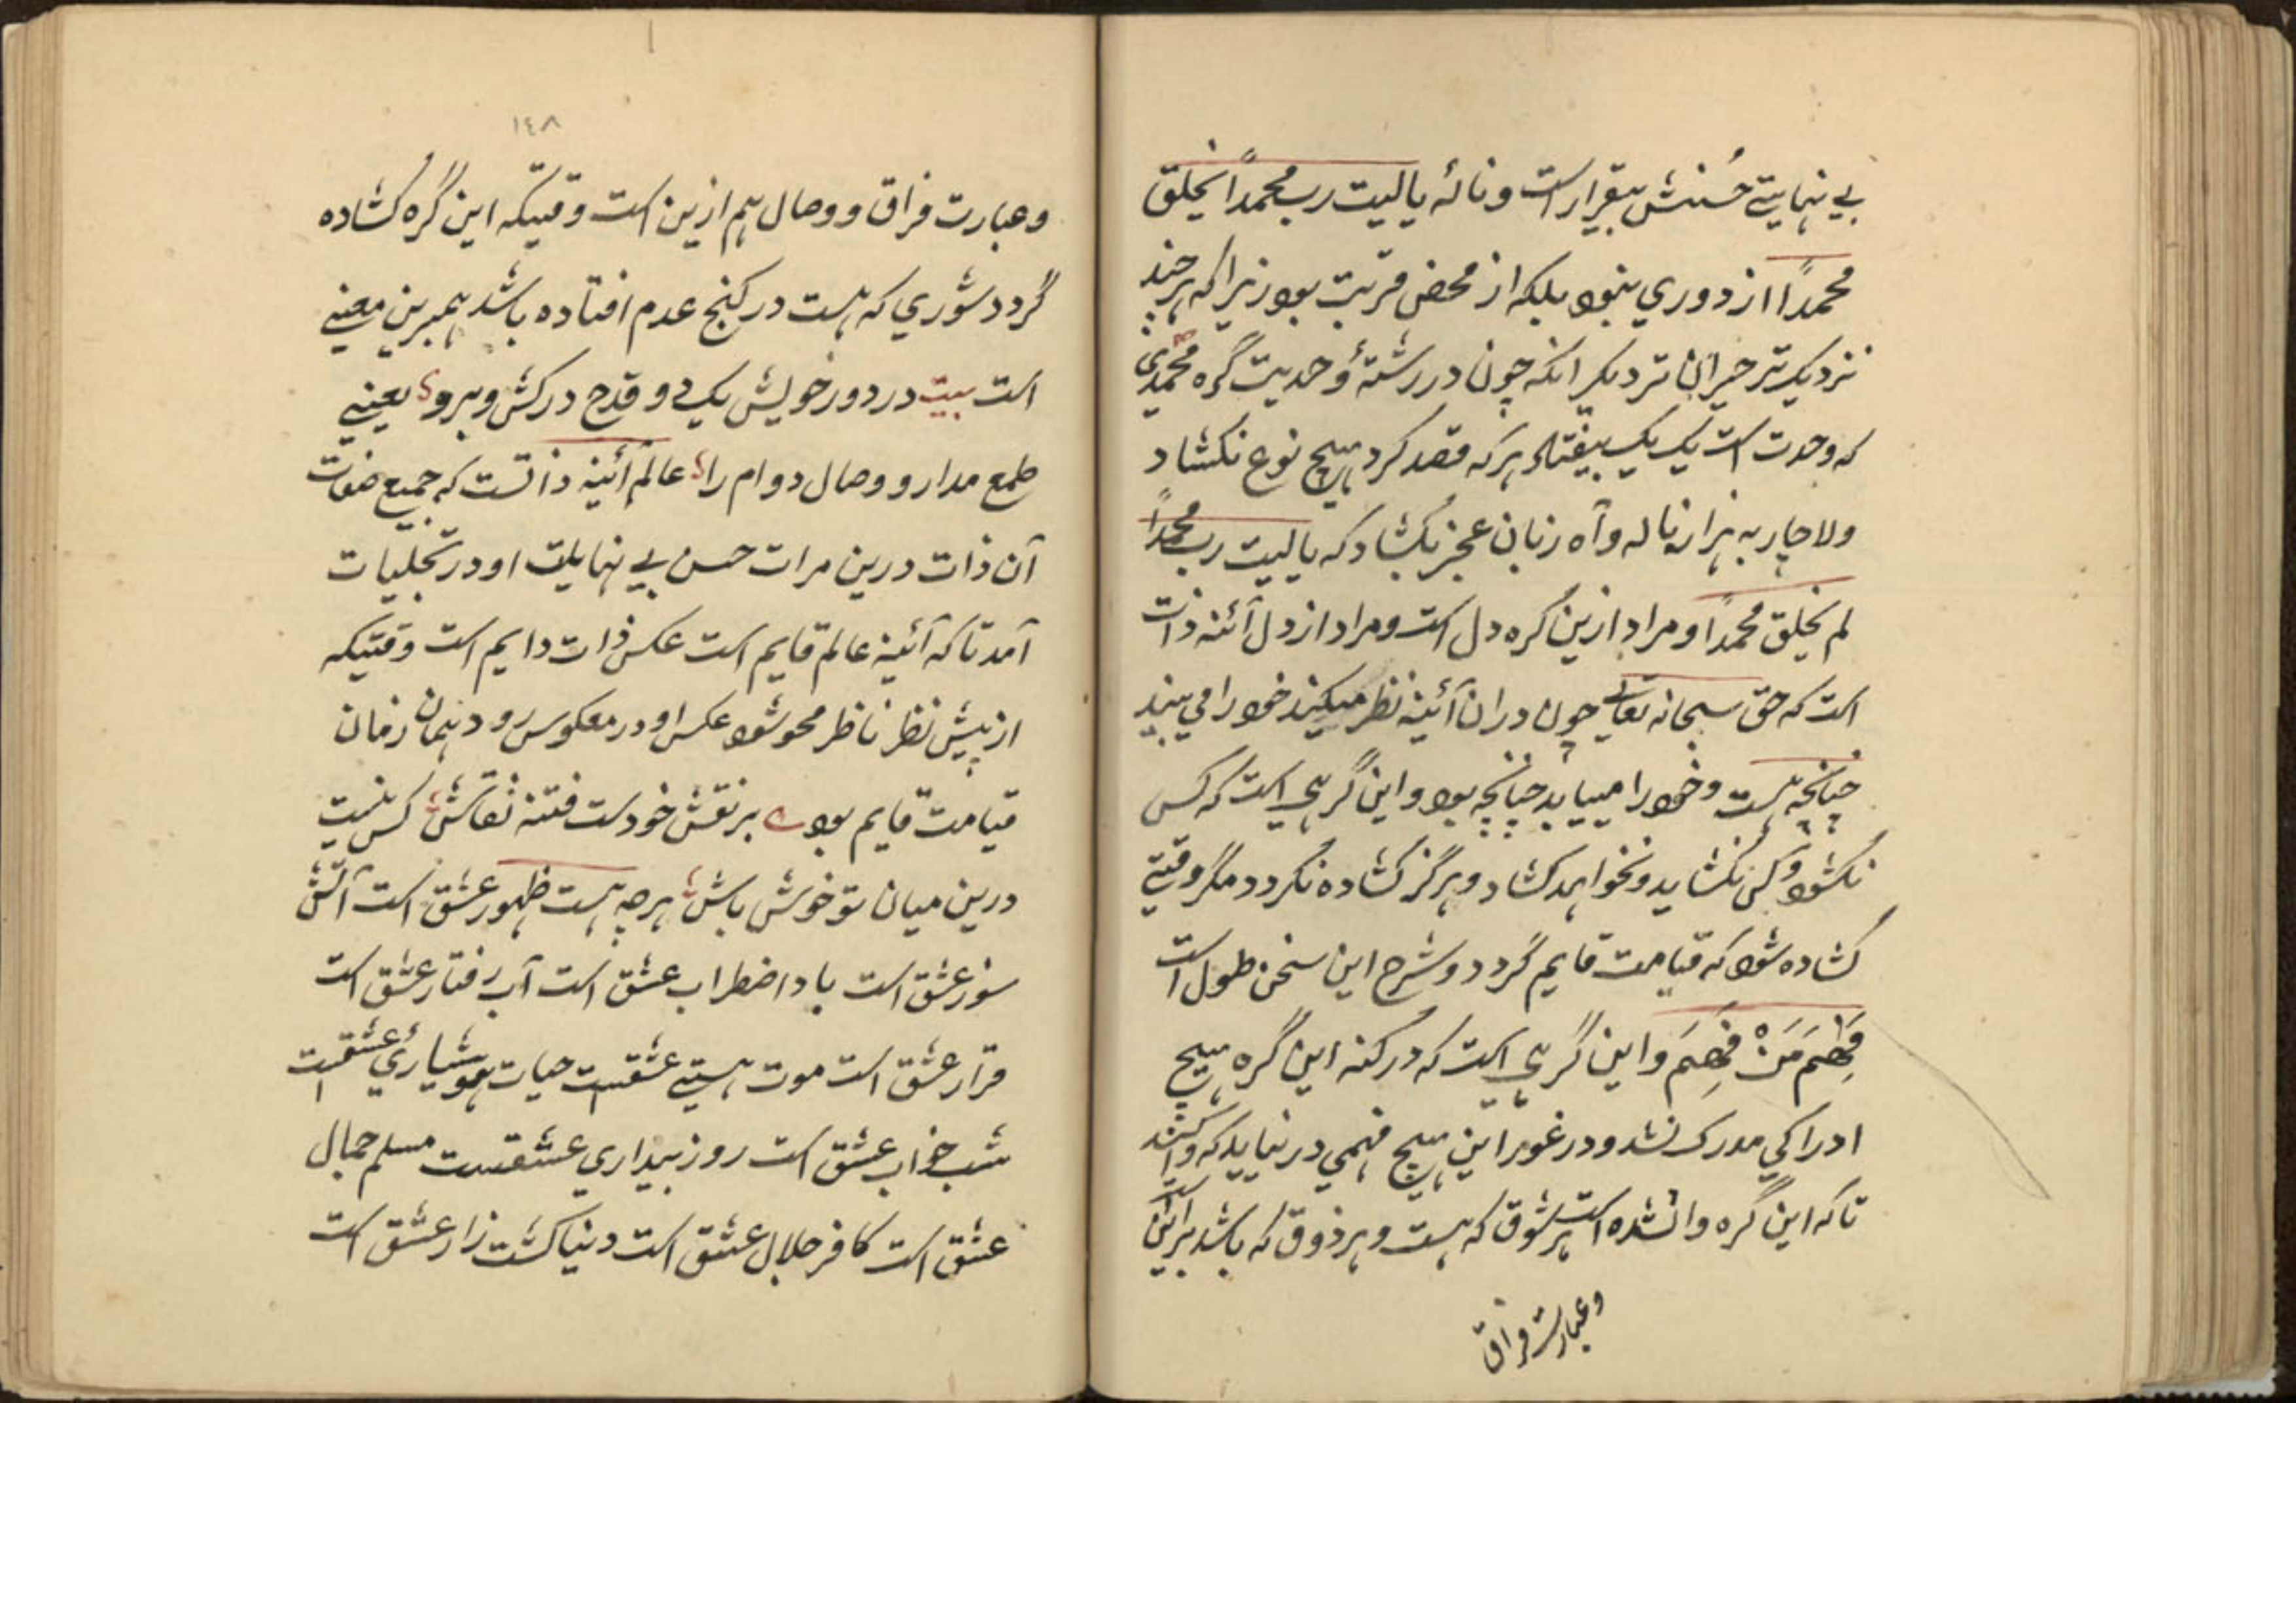 بي نهايتي حُسنش بيقرار است و نالۀ ياليت رب محمدًا لم يخلق
محمدًا از دوري نبود بلكه از محض قربت بود زيرا كه هر چند
نزديك تر حيران تر ديگر انكه چون در رشتۀ وحديت گره محمدي
كه وحدت است يك بيك بيفتاد هر كه قصد كرد هيچ نوع نكشاد
ولاچار به هزار ناله و آه زبان عجز بكشاد كه ياليت رب محمدًا
لم يخلق محمدًا و مراد ازين گره دل است و مراد از دل آئنه ذات
است كه حق سبحانه تعالي چون دران آئينه نظر ميكند خود را مي بيند
چنانچه هست و خود را مييابد چنانچه بود و اين گرهي است كه كس
نكشود و كس نكشايد و نخواهد كشاد و هرگز كشاده نكردد مگر وقتي
كشاده شود كه قيامت قايم گردد و شرح اين سخن طول است
فَهِمَ مَنْ فَهِمَ و اين گرهي است كه در كنه اين گره هيچ
ادراكي مدرك نشد و در غور اين هيچ فهمي در نيايد كه وا كند
تا كه اين گره وا نشده است هر شوق كه هست و هر ذوق كه باشد برائي اين است
وعبارت فراق
١٤٨
وعبارت فراق و وصال هم ازين است وقتيكه اين گره كشاده
گردد شوري كه هست در كنج عدم افتاده باشد همبرين معني
است بيت در دور خويش يك دو قدح دركش و برو يعني
طمع مدار و وصال دوام را عالم آئينه ذاتست كه جميع صفات
آن ذات درين مرات حسن بي نهايت او در تجليات
آمد تا كه آئينه عالم قايم است عكس ذات دايم است وقتيكه
از پيش نظر ناظر محو شود عكس او در معكوس رود همان زمان
قيامت قايم بود بر نقش خود ست فتنه نقاش كس نيست
درين ميان تو خوش باش هر چه هست ظهور عشق است آتش
سوز عشق است باد اضطراب عشق است آب رفتار عشق است
قرار عشق است موت هستي عشقست حيات هوشياري عشقست
شب خواب عشق است روز بيداري عشقست مسلم جمال
عشق است كافر جلال عشق است دنيا كشت زار عشق است